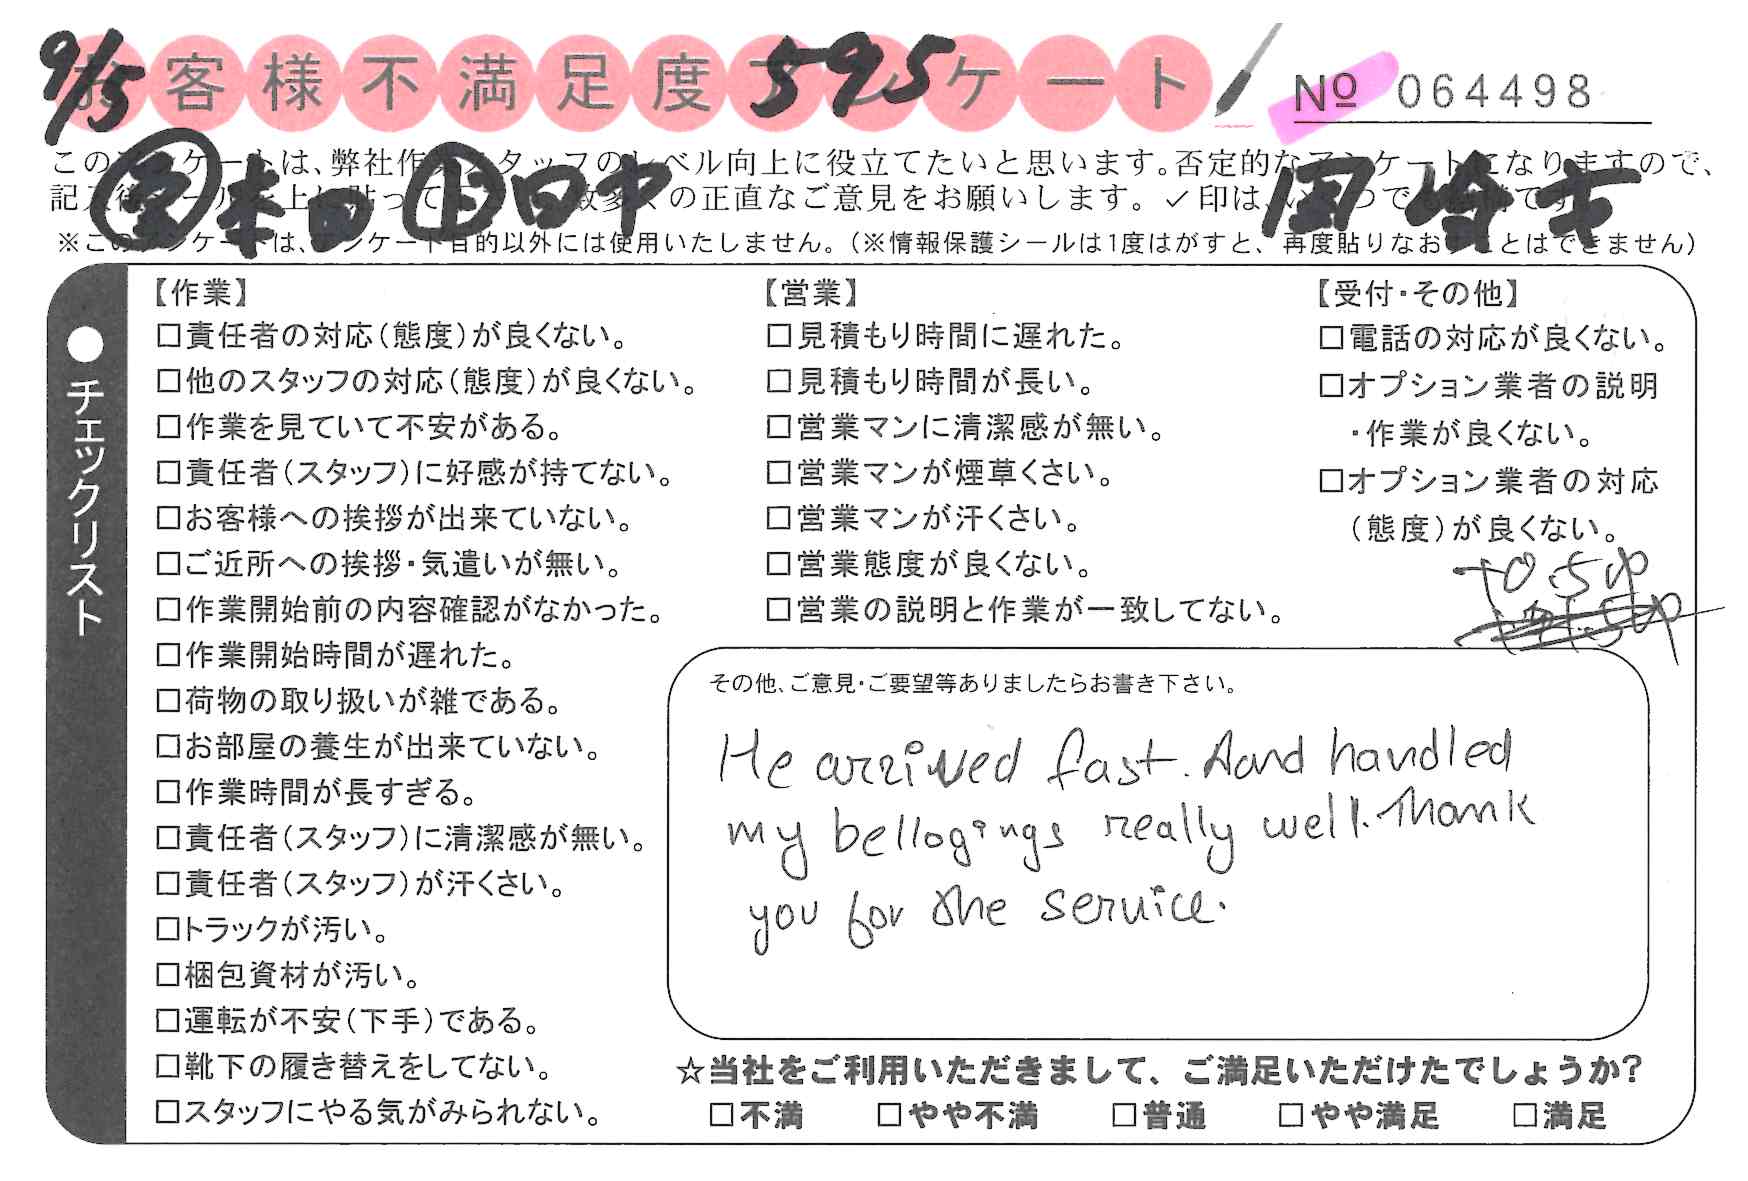 9/15 お客様不満足度アンケート 595
№ 064498
このアンケートは、弊社作業スタッフのレベル向上に役立てたいと思います。否定的なアンケートになりますので、
記入後シールを上に貼って 数多くの正直なご意見をお願いします。✓印は、いくつでも です
本田 田中
※このアンケートは、アンケート目的以外には使用いたしません。(※情報保護シールは1度はがすと、再度貼りなおすことはできません)
●チェックリスト
【作業】
□責任者の対応(態度)が良くない。
□他のスタッフの対応(態度)が良くない。
□作業を見ていて不安がある。
□責任者(スタッフ)に好感が持てない。
□お客様への挨拶が出来ていない。
□ご近所への挨拶・気遣いが無い。
□作業開始前の内容確認がなかった。
□作業開始時間が遅れた。
□荷物の取り扱いが雑である。
□お部屋の養生が出来ていない。
□作業時間が長すぎる。
□責任者(スタッフ)に清潔感が無い。
□責任者(スタッフ)が汗くさい。
□トラックが汚い。
□梱包資材が汚い。
□運転が不安(下手)である。
□靴下の履き替えをしてない。
□スタッフにやる気がみられない。
【営業】
□見積もり時間に遅れた。
□見積もり時間が長い。
□営業マンに清潔感が無い。
□営業マンが煙草くさい。
□営業マンが汗くさい。
□営業態度が良くない。
□営業の説明と作業が一致してない。
【受付・その他】
□電話の対応が良くない。
□オプション業者の説明
・作業が良くない。
□オプション業者の対応
(態度)が良くない。
+0.5
その他、ご意見・ご要望等ありましたらお書き下さい。
He arrived fast. Aand handled
my bellogings really well. Thank
you for the service.
☆当社をご利用いただきまして、ご満足いただけたでしょうか?
□不満 □やや不満 □普通 □やや満足 □満足